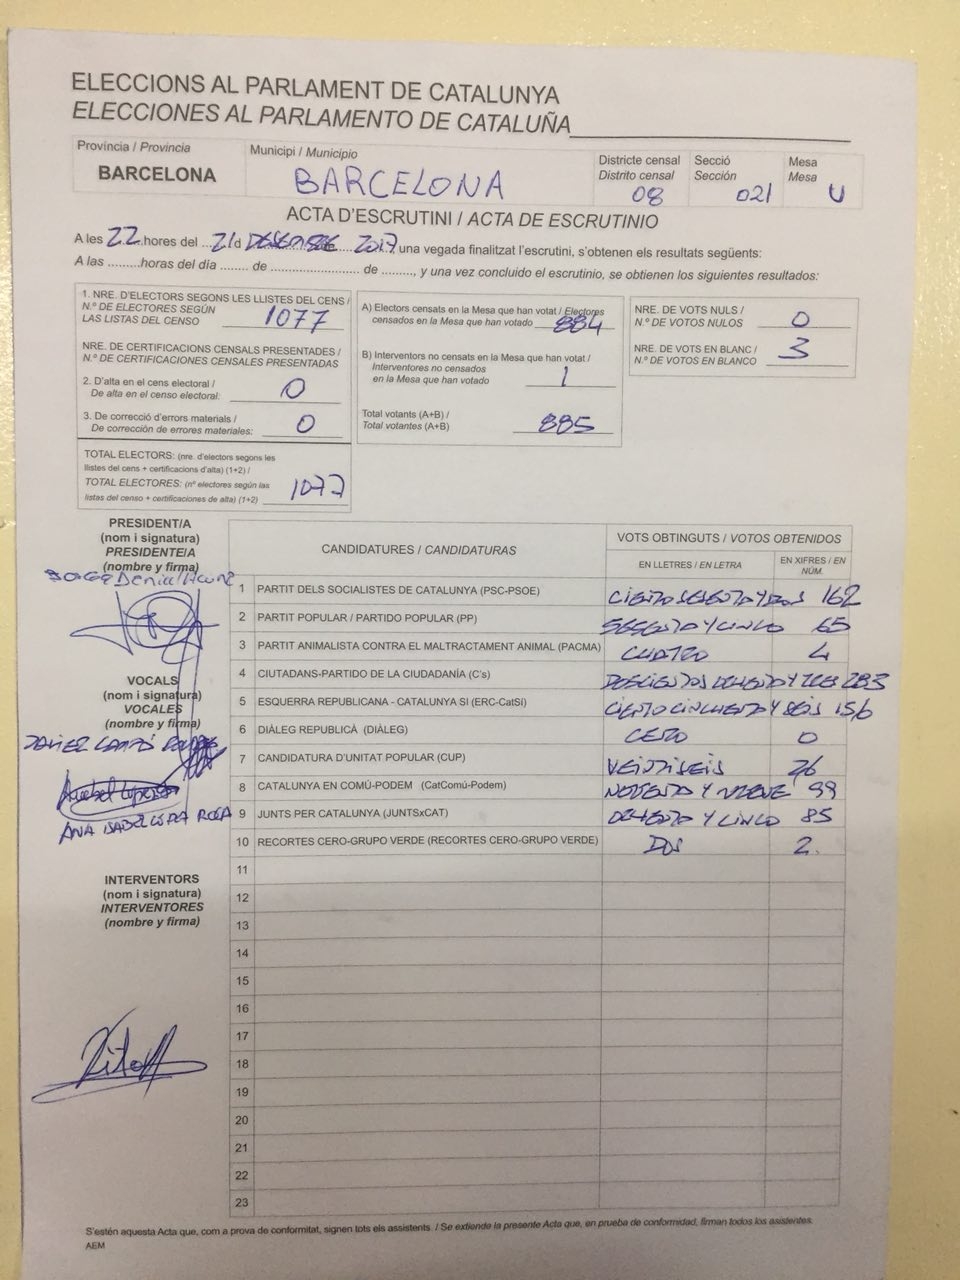 ELECCIONS AL PARLAMENT DE CATALUNYA
ELECCIONES AL PARLAMENTO DE CATALUÑA
Provincia / Provincia
BARCELONA
Municipi / Municipio
BARCELONA
Districte censal
Distrito censal
08
Secció
Sección
021
Mesa
Mesa
U
ACTA D'ESCRUTINI / ACTA DE ESCRUTINIO
A les 22 hores del 21 d DESEMBRE 2017 una vegada finalitzat l'escrutini, s'obtenen els resultats següents:
A las .........horas del día ........ de ......................... de ........., y una vez concluido el escrutinio, se obtienen los siguientes resultados:
1. NRE. D'ELECTORS SEGONS LES LLISTES DEL CENS /
N.º DE ELECTORES SEGÚN
LAS LISTAS DEL CENSO 1077
NRE. DE CERTIFICACIONS CENSALS PRESENTADES /
N.º DE CERTIFICACIONES CENSALES PRESENTADAS
2. D'alta en el cens electoral /
De alta en el censo electoral: 0
3. De correcció d'errors materials /
De corrección de errores materiales: 0
TOTAL ELECTORS: (nre. d'electors segons les
llistes del cens + certificacions d'alta) (1+2) /
TOTAL ELECTORES: (nº electores según las
listas del censo + certificaciones de alta) (1+2) 1077
A) Electors censats en la Mesa que han votat / Electores
censados en la Mesa que han votado 884
B) Interventors no censats en la Mesa que han votat /
Interventores no censados
en la Mesa que han votado 1
Total votants (A+B) /
Total votantes (A+B) 885
NRE. DE VOTS NULS /
N.º DE VOTOS NULOS 0
NRE. DE VOTS EN BLANC /
N.º DE VOTOS EN BLANCO 3
PRESIDENT/A
(nom i signatura)
PRESIDENTE/A
(nombre y firma)
VOCALS
(nom i signatura)
VOCALES
(nombre y firma)
JAVIER
ANA ISABEL LOPEZ ROSA
INTERVENTORS
(nom i signatura)
INTERVENTORES
(nombre y firma)
CANDIDATURES / CANDIDATURAS
VOTS OBTINGUTS / VOTOS OBTENIDOS
EN LLETRES / EN LETRA
EN XIFRES / EN NÚM.
1 PARTIT DELS SOCIALISTES DE CATALUNYA (PSC-PSOE) CIENTO SESENTA Y DOS 162
2 PARTIT POPULAR / PARTIDO POPULAR (PP) SESENTA Y CINCO 65
3 PARTIT ANIMALISTA CONTRA EL MALTRACTAMENT ANIMAL (PACMA) CUATRO 4
4 CIUTADANS-PARTIDO DE LA CIUDADANÍA (C's) DOSCIENTOS OCHENTA Y TRES 283
5 ESQUERRA REPUBLICANA - CATALUNYA SI (ERC-CatSí) CIENTO CINCUENTA Y SEIS 156
6 DIÀLEG REPUBLICÀ (DIÀLEG) CERO 0
7 CANDIDATURA D'UNITAT POPULAR (CUP) VEINTISEIS 26
8 CATALUNYA EN COMÚ-PODEM (CatComú-Podem) NOVENTA Y NUEVE 99
9 JUNTS PER CATALUNYA (JUNTSxCAT) OCHENTA Y CINCO 85
10 RECORTES CERO-GRUPO VERDE (RECORTES CERO-GRUPO VERDE) DOS 2.
11
12
13
14
15
16
17
18
19
20
21
22
23
S'estén aquesta Acta que, com a prova de conformitat, signen tots els assistents. / Se extiende la presente Acta que, en prueba de conformidad, firman todos los asistentes.
AEM